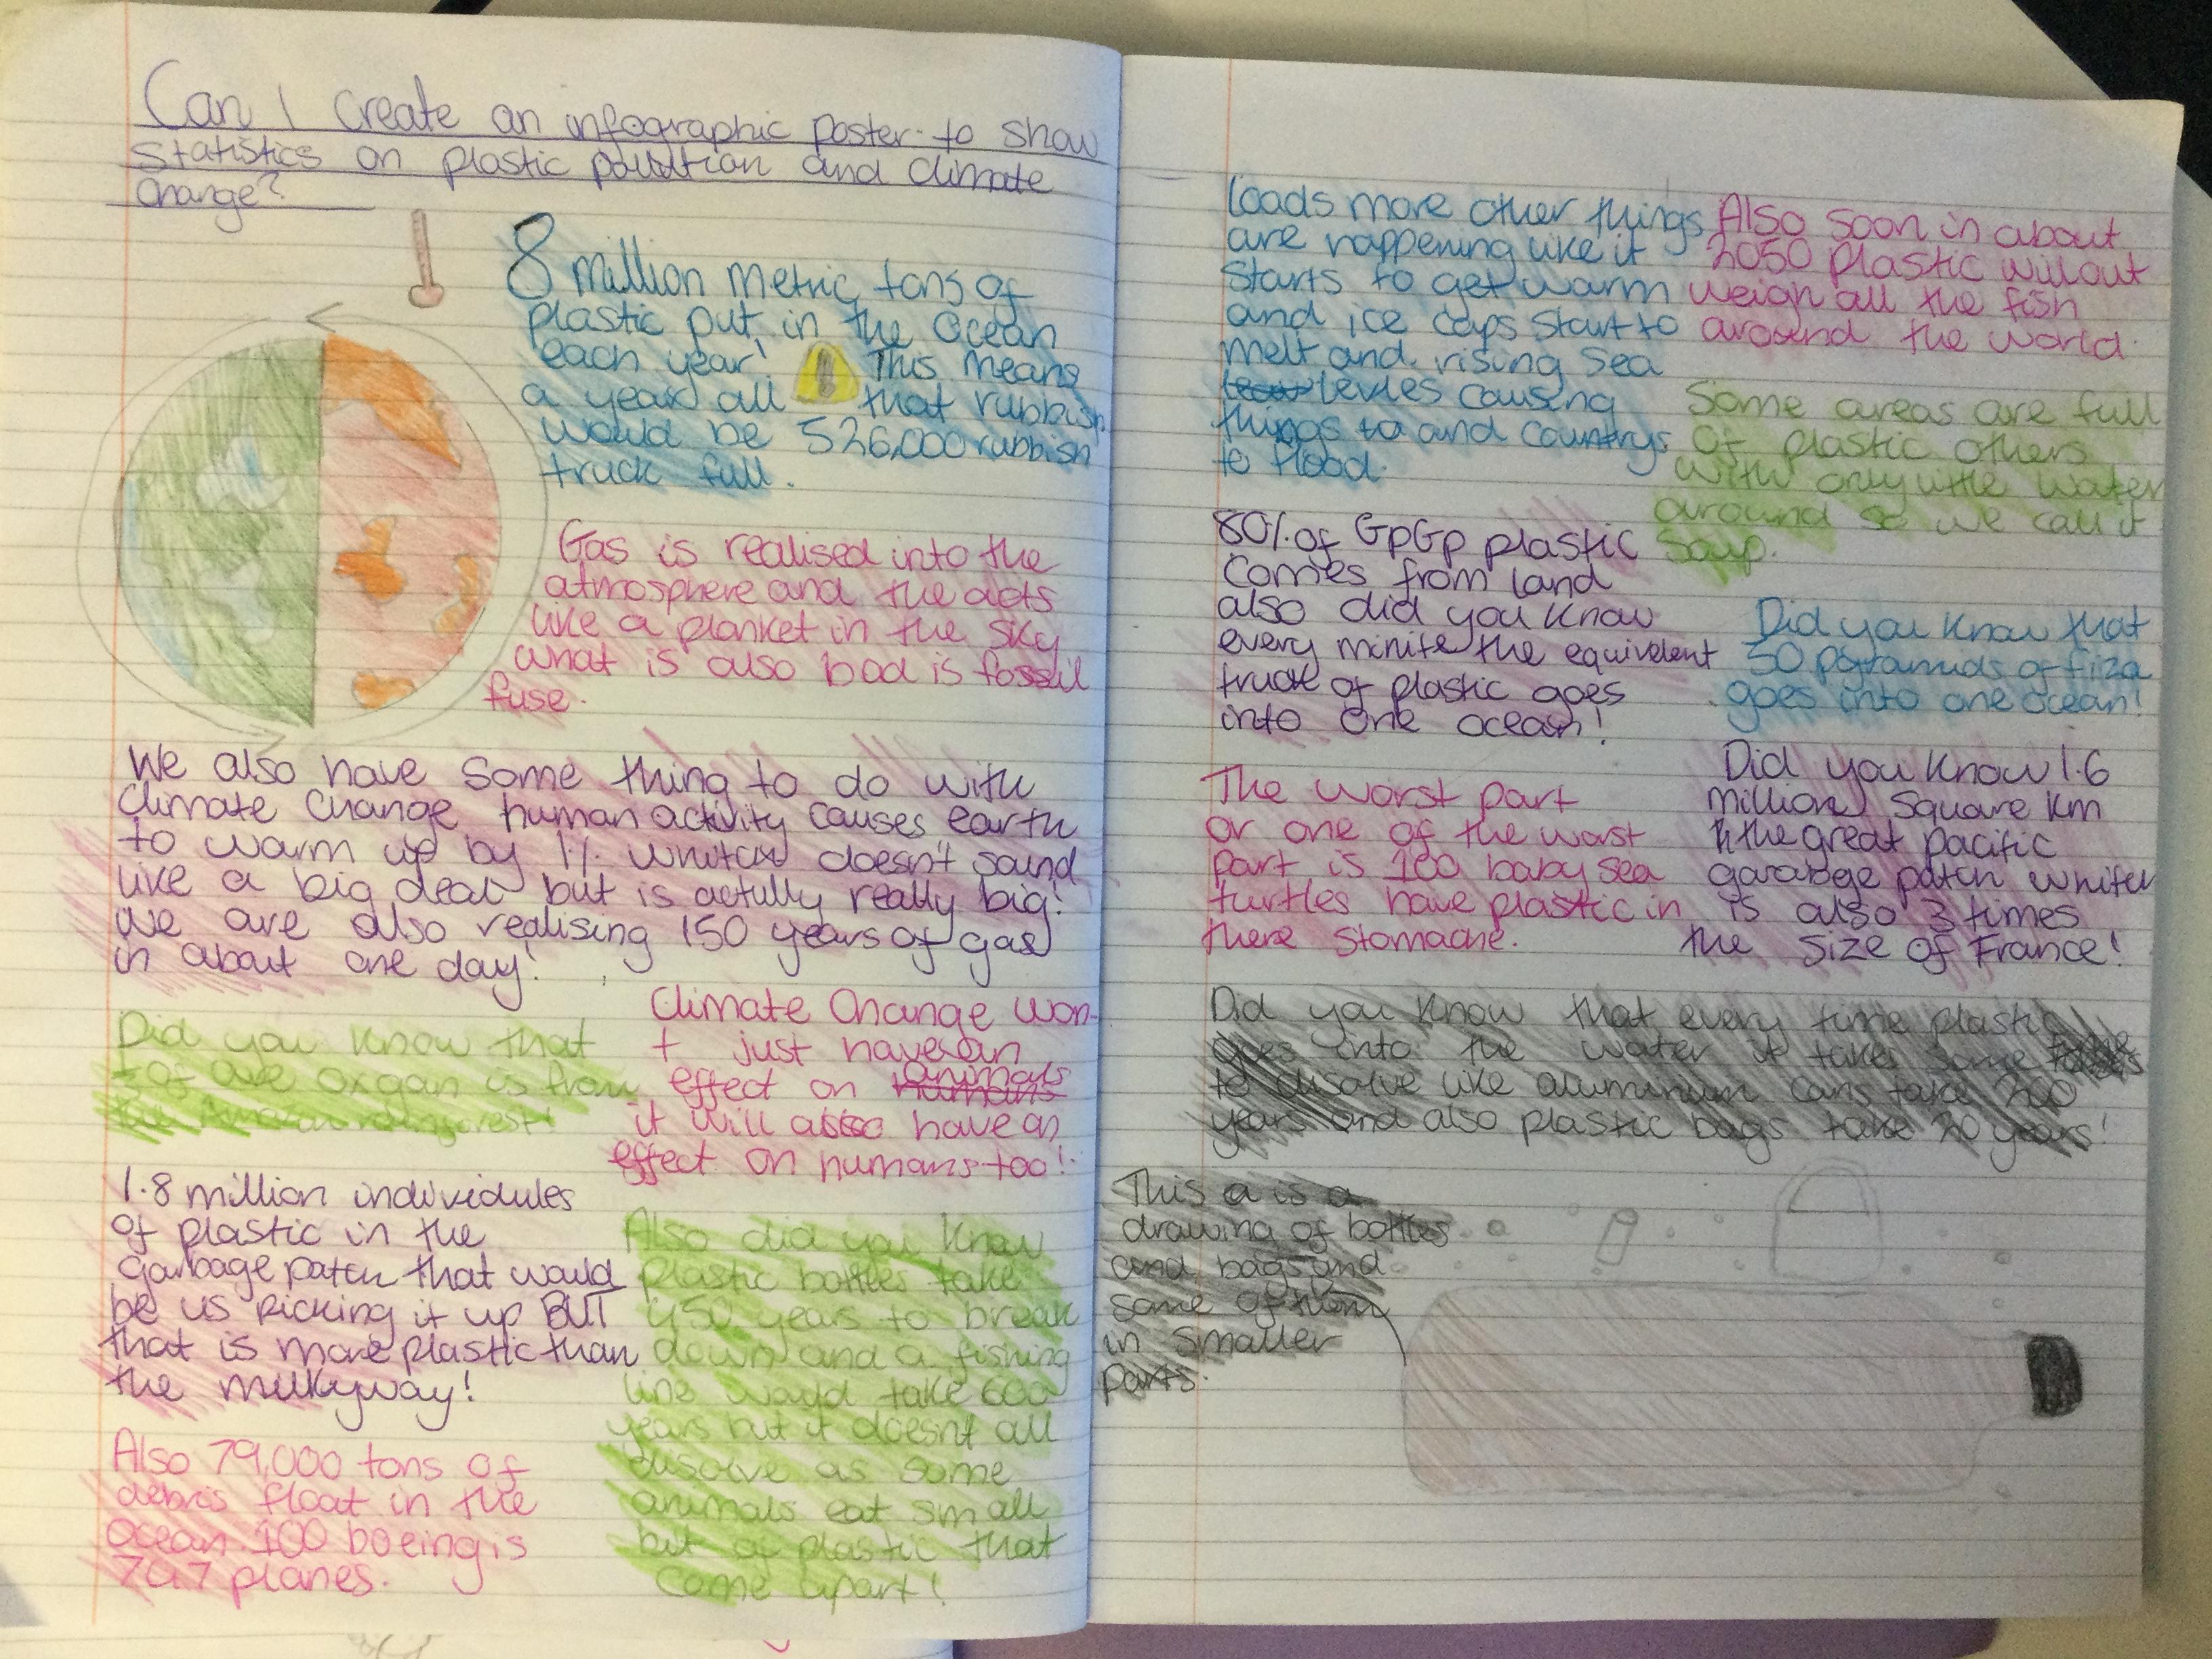 Can I create an infographic poster to show
statistics on plastic pollution and climate
change?
8 million metric tons of
plastic put in the ocean
each year! This means
a year all that rubbish
would be 526,000 rubbish
truck full.
Gas is realised into the
atmosphere and the acts
like a planket in the sky
what is also bad is fossil
fuse.
We also have some thing to do with
climate change human activity causes earth
to warm up by 1% which doesn't sound
like a big deal but is actully really big!
We are also realising 150 years of gas
in about one day!
Did you know that
of are oxgan is from
the Amazon rainforest!
Climate Change won-
t just have an
effect on animals
it will also have an
effect on humans too!
1.8 million individules
of plastic in the
garbage patch that would
be us picking it up BUT
that is more plastic than
the milkyway!
Also did you know
plastic bottles take
450 years to break
down and a fishing
line would take 600
years but it doesnt all
disolve as some
animals eat small
bit of plastic that
come apart!
Also 79,000 tons of
debris float in the
ocean 100 boeing is
747 planes.
loads more other things
are happening like it
starts to get warm
and ice caps start to
melt and rising sea
levles causing
things to and countrys
to flood.
Also soon in about
2050 plastic will out
weigh all the fish
around the world.
Some areas are full
of plastic others
with only little water
around so we call it
soup.
80% of GpGp plastic
comes from land
also did you know
every minite the equivelent
truck of plastic goes
into one ocean!
Did you know that
50 pyramids of fiza
goes into one ocean!
The worst part
or one of the worst
part is 100 baby sea
turtles have plastic in
there stomache.
Did you know 1.6
million square km
the great pacific
garabge patch whitch
is also 3 times
the size of France!
Did you know that every time plastic
goes into the water it takes some time
to disolve like aluminum cans take 200
years and also plastic bags take 20 years!
This a is a
drawing of bottles
and bags and
some of them
in smaller
parts.